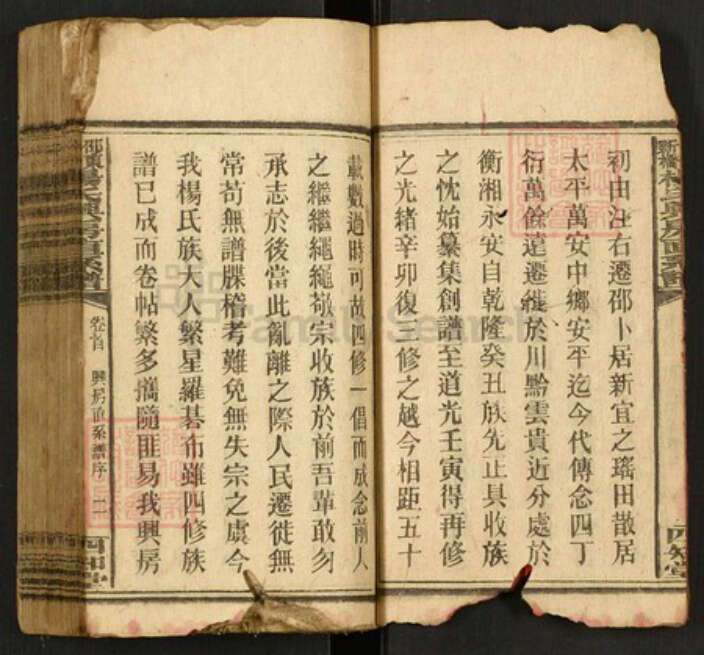 初由江右遷邵卜居新宜之瑤田散居
太平萬安中鄉安平迄今代傳念四丁
衍萬餘達遷徙於川黔雲貴近分處於
衡湘永安自乾隆癸丑族先正具收族
之忱始纂集創譜至道光壬寅得再修
之光緒辛卯復三修之越今相距五十
載數過時可故四修一倡而成念前人
之繼繼繩繩敬宗收族於前吾輩敢勿
承志於後當此亂離之際人民遷徙無
常苟無譜牒稽考難免無失宗之虞今
我楊氏族大人繁星羅碁布雖四修族
譜已成而卷帖繁多攜隨匪易我興房
卷首
興房直系譜序
二
四知堂
四知堂